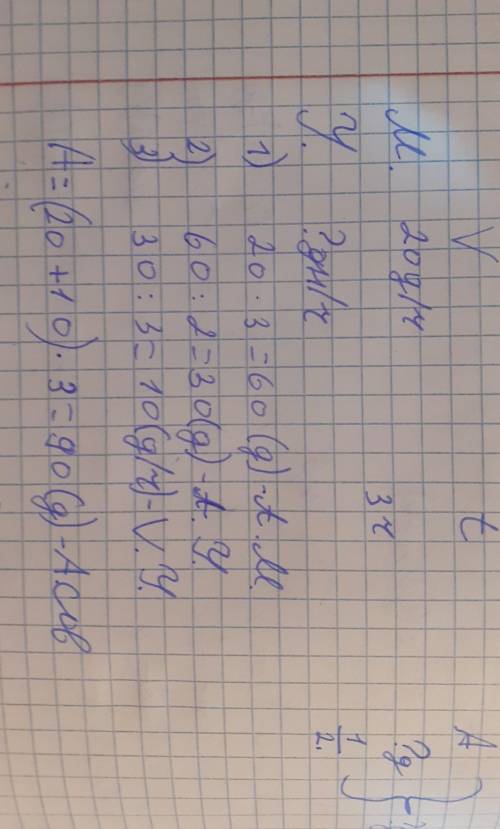 V t A
М. 20д/ч 3ч ?д
У. ?дт/ч 1/2
1) 20 · 3 = 60 (д) - А. М.
2) 60 : 2 = 30 (д) - А. У.
3) 30 : 3 = 10 (д/ч) - V. У.
А = (20 + 10) · 3 = 90 (д) - А смв